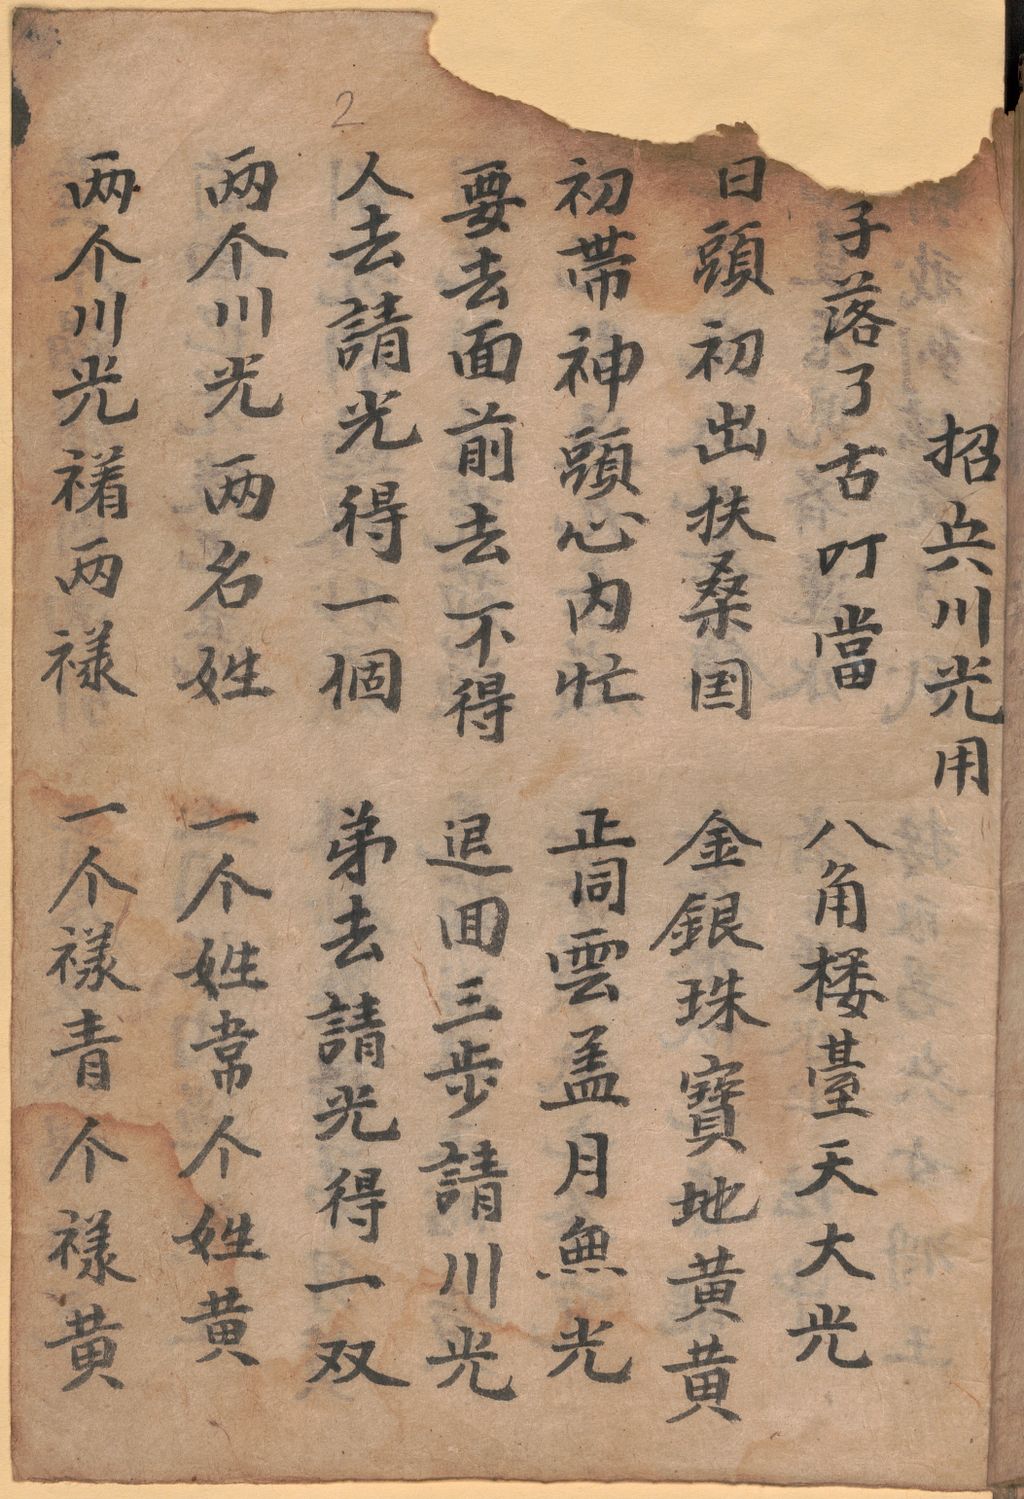 招兵川光用
子落了古叮當 八角楼臺天大光
日頭初出扶桑国 金銀珠寶地黄黄
初帶神頭心内忙 正同雲盖月無光
要去面前去不得 退回三步請川光
人去請光得一個 弟去請光得一双
两个川光两名姓 一个姓常个姓黄
两个川光禙两樣 一个樣青个樣黄
2